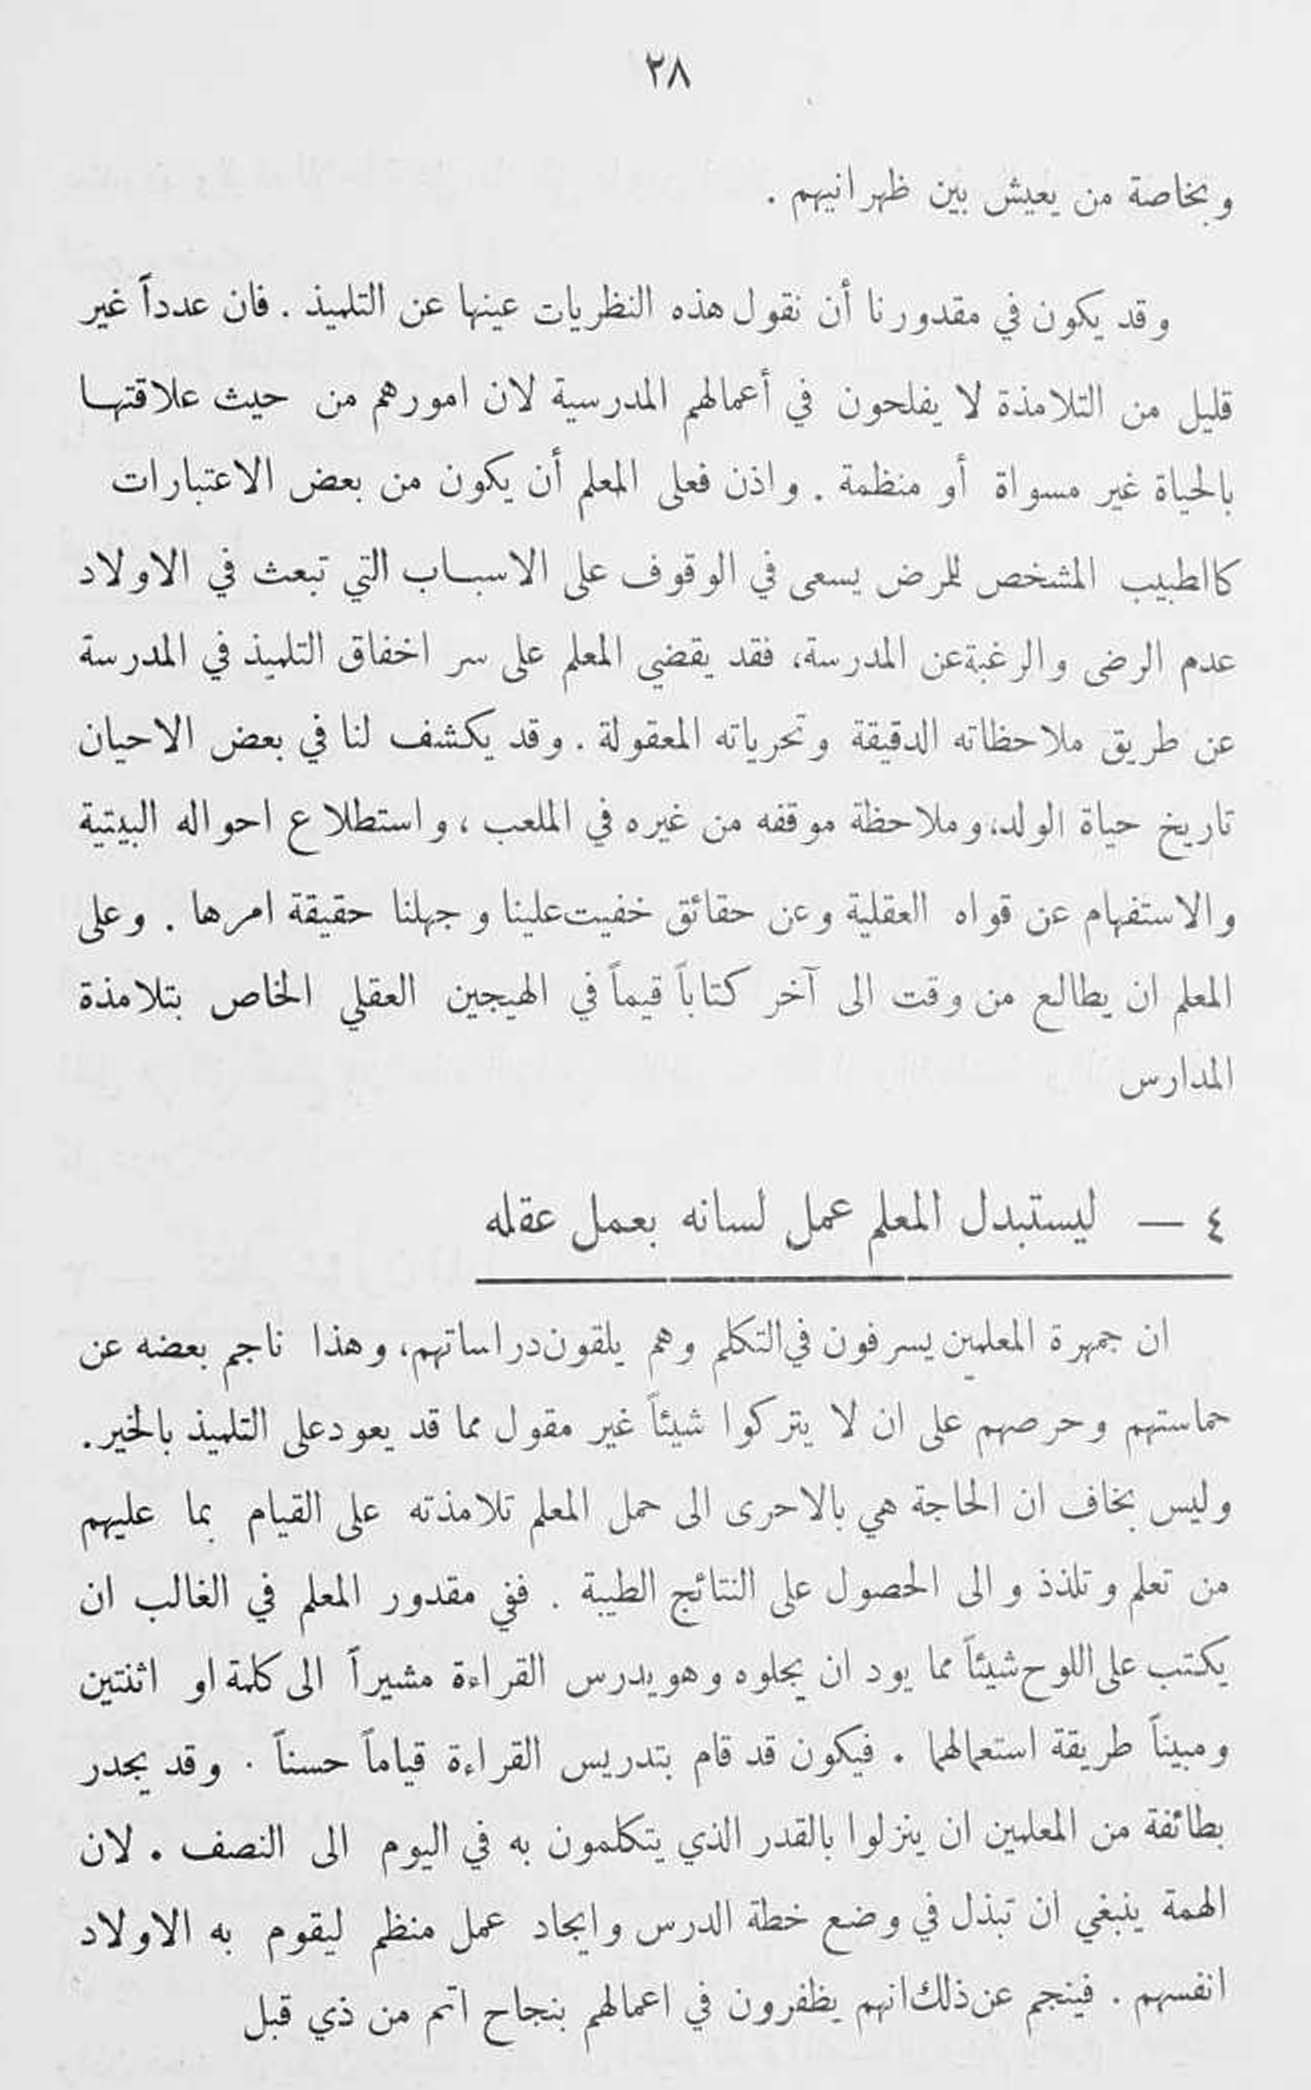 ٢٨
وبخاصة من يعيش بين ظهرانيهم .
وقد يكون في مقدورنا أن نقول هذه النظريات عينها عن التلميذ . فان عدداً غير
قليل من التلامذة لا يفلحون في أعمالهم المدرسية لان امورهم من حيث علاقتها
بالحياة غير مسواة أو منظمة . واذن فعلى المعلم أن يكون من بعض الاعتبارات
كالطبيب المشخص للمرض يسعى في الوقوف على الاسباب التي تبعث في الاولاد
عدم الرضى والرغبة عن المدرسة، فقد يقضي المعلم على سر اخفاق التلميذ في المدرسة
عن طريق ملاحظاته الدقيقة وتحرياته المعقولة . وقد يكشف لنا في بعض الاحيان
تاريخ حياة الولد، وملاحظة موقفه من غيره في الملعب ، واستطلاع احواله البيتية
والاستفهام عن قواه العقلية وعن حقائق خفيت علينا وجهلنا حقيقة امرها . وعلى
المعلم ان يطالع من وقت الى آخر كتاباً قيماً في الهيجين العقلي الخاص بتلامذة
المدارس
٤ — ليستبدل المعلم عمل لسانه بعمل عقله
ان جمهرة المعلمين يسرفون في التكلم وهم يلقون دراساتهم، وهذا ناجم بعضه عن
حماستهم وحرصهم على ان لا يتركوا شيئاً غير مقول مما قد يعود على التلميذ بالخير.
وليس بخاف ان الحاجة هي بالاحرى الى حمل المعلم تلامذته على القيام بما عليهم
من تعلم وتلذذ والى الحصول على النتائج الطيبة . ففي مقدور المعلم في الغالب ان
يكتب على اللوح شيئاً مما يود ان يجلوه وهو يدرس القراءة مشيراً الى كلمة او اثنتين
ومبيناً طريقة استعمالهما . فيكون قد قام بتدريس القراءة قياماً حسناً . وقد يجدر
بطائفة من المعلمين ان ينزلوا بالقدر الذي يتكلمون به في اليوم الى النصف . لان
الهمة ينبغي ان تبذل في وضع خطة الدرس وايجاد عمل منظم ليقوم به الاولاد
انفسهم . فينجم عن ذلك انهم يظفرون في اعمالهم بنجاح اتم من ذي قبل